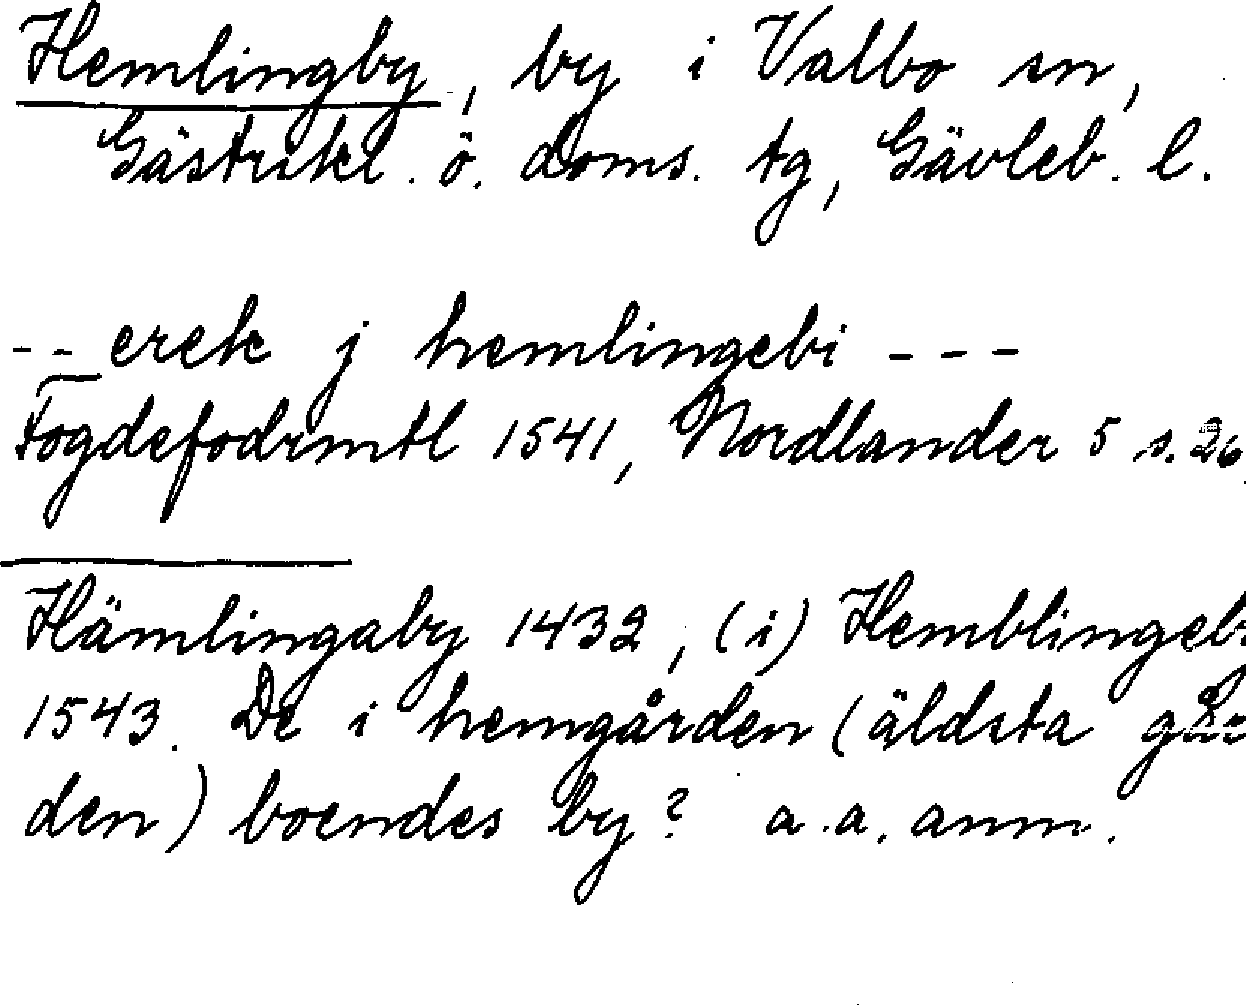 Hemlingby, by i Valbo sn,
Gästrikl. ö. doms. tg, Gävleb. l.
-- erek j hemlingebi ---
Fogdefodrmtl 1541, Nordlander 5 s. 26.
Hämlingaby 1432, (i) Hemblingeb
1543. De i hemgården (äldsta går
den) boendes by? a.a. anm.